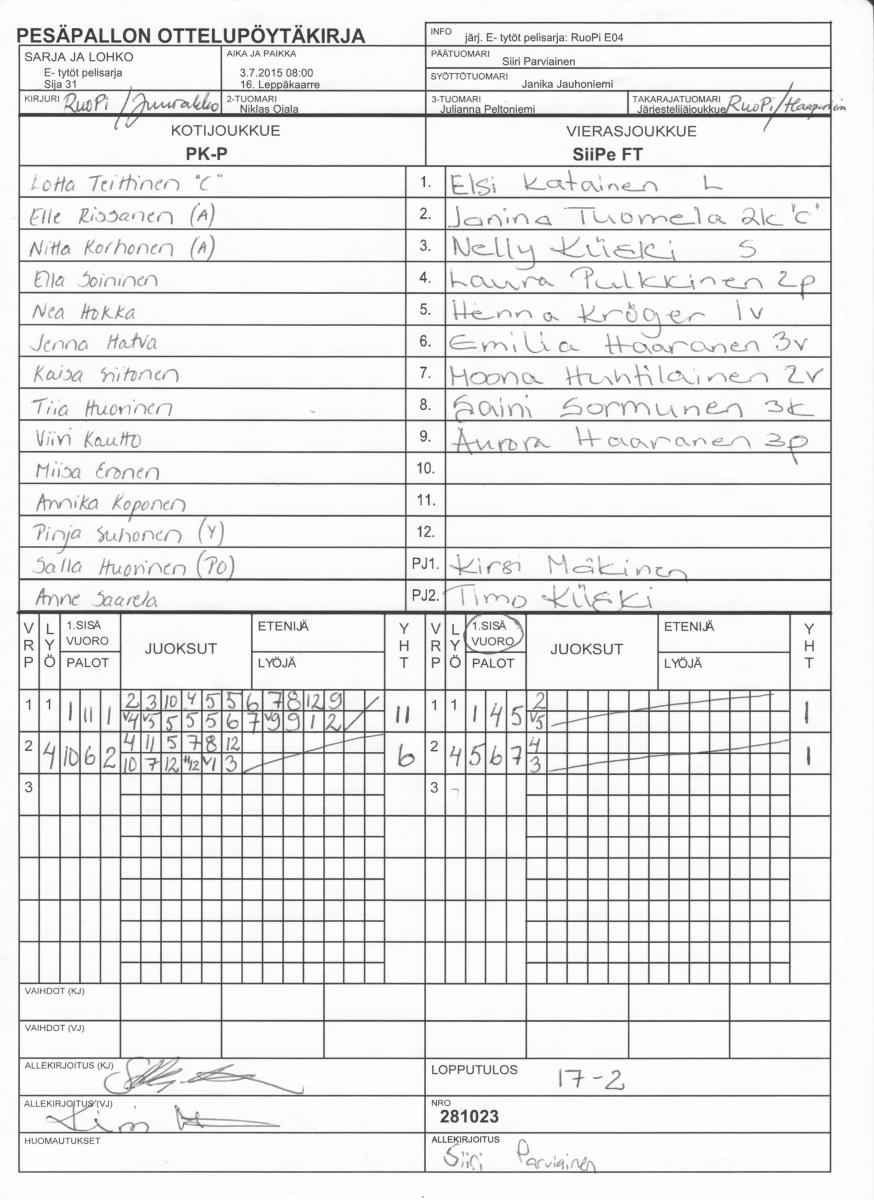 PESÄPALLON OTTELUPÖYTÄKIRJA
INFO järj. E- tytöt pelisarja: RuoPi E04
SARJA JA LOHKO
E- tytöt pelisarja
Sija 31
AIKA JA PAIKKA
3.7.2015 08:00
16. Leppäkaarre
PÄÄTUOMARI
Siiri Parviainen
SYÖTTÖTUOMARI
Janika Jauhoniemi
KIRJURI RuoPi / Juurakko
2-TUOMARI
Niklas Ojala
3-TUOMARI
Julianna Peltoniemi
TAKARAJATUOMARI
Järjestelijäjoukkue RuoPi /
KOTIJOUKKUE VIERASJOUKKUE
PK-P SiiPe FT
Lotta Teittinen "C" 1. Elsi Katainen L
Elle Rissanen (A) 2. Janina Tuomela 2k "C"
Nitta Korhonen (A) 3. Nelly Kiiski S
Ella Soininen 4. Laura Pulkkinen 2p
Nea Hokka 5. Henna Kröger 1v
Jenna Hatva 6. Emilia Haaranen 3v
Kaisa Siitonen 7. Moona Huhtilainen 2v
Tiia Huorinen 8. Saini Sormunen 3k
Viivi Kautto 9. Aurora Haaranen 3p
Miisa Eronen 10.
Annika Koponen 11.
Pinja Suhonen (Y) 12.
Salla Huorinen (PO) PJ1. Kirsi Mäkinen
Anne Saarela PJ2. Timo Kiiski
VRP LYÖ 1.SISÄ VUORO PALOT JUOKSUT ETENIJÄ LYÖJÄ YHT VRP LYÖ 1.SISÄ VUORO PALOT JUOKSUT ETENIJÄ LYÖJÄ YHT
1 1 1 11 1 2 3 10 4 5 5 6 7 8 12 9 11 1 1 1 4 5 2 1
V4 V5 5 5 5 6 7 V9 9 1 2 V5
2 4 10 6 2 4 11 5 7 8 12 6 2 4 5 6 7 4 1
10 7 12 V1 3 3
3 3
VAIHDOT (KJ)
VAIHDOT (VJ)
ALLEKIRJOITUS (KJ)
LOPPUTULOS 17-2
ALLEKIRJOITUS (VJ)
NRO
281023
HUOMAUTUKSET
ALLEKIRJOITUS
Siiri Parviainen